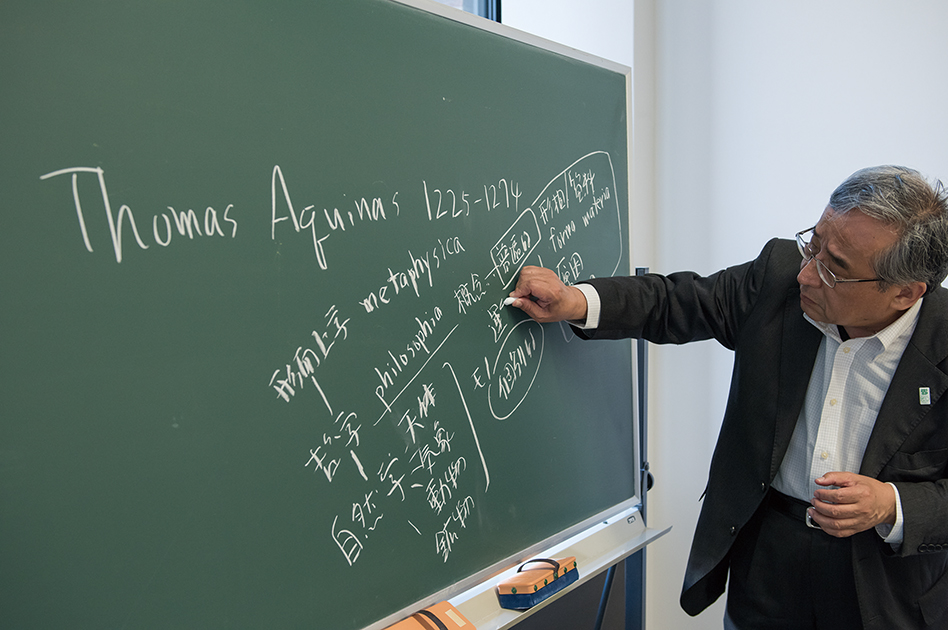 Thomas Aquinas 1225-1274
形而上学 metaphysica
哲学 philosophia
自然学
天体
気象
動物
鉱物
概念 普遍的
モノ 個別的
形相/質料
forma materia